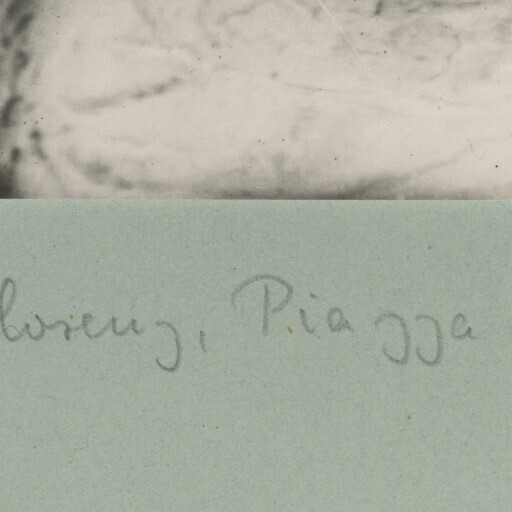 lorenz, Piazza